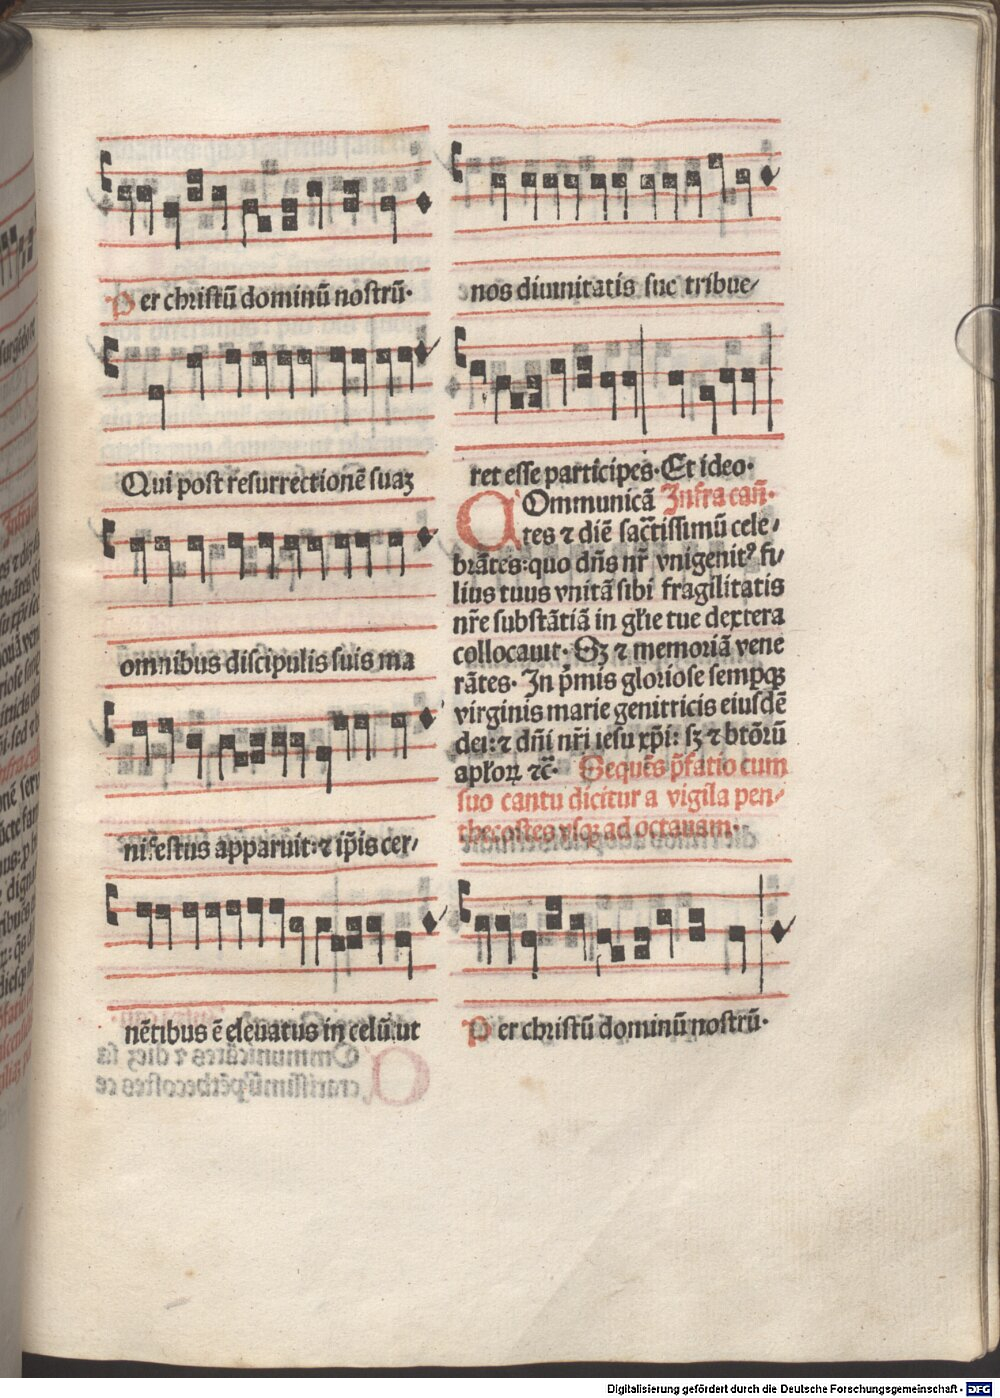 Per christū dominū nostrū·
Qui post resurrectionē suaꝫ
omnibus discipulis suis ma
nifestus apparuit: ⁊ ip̄is cer⸗
nētibus ē eleuatus in celū. ut
nos diuinitatis sue tribue⸗
ret esse participes· Et ideo·
COmmunicā Infra cań·
tes ⁊ diē sac̄tissimū cele⸗
brātes: quo dn̄s nr̄ vnigenitꝰ fi⸗
lius tuus vnitā sibi fragilitatis
nr̄e substātiā in gl̄ie tue dextera
collocauit· Sꝫ ⁊ memoriā vene
rātes· In p̄mis gloriose sempqꝫ
virginis marie genitricis eiusdē
dei: ⁊ dn̄i nr̄i iesu xp̄i: sꝫ ⁊ btōrū
apl'oꝝ ⁊c̄· Sequēs p̄fatio cum
suo cantu dicitur a vigila pen⸗
thecostes vsqꝫ ad octauam·
Per christū dominū nostrū·
Digitalisierung gefördert durch die Deutsche Forschungsgemeinschaft - DFG